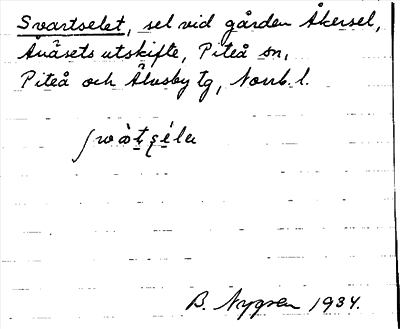 Svartselet, sel vid gården Åkersel,
Ånäsets utskifte, Piteå sn,
Piteå och Älvsby tg, Norrb. l.
B. Nygren 1934.